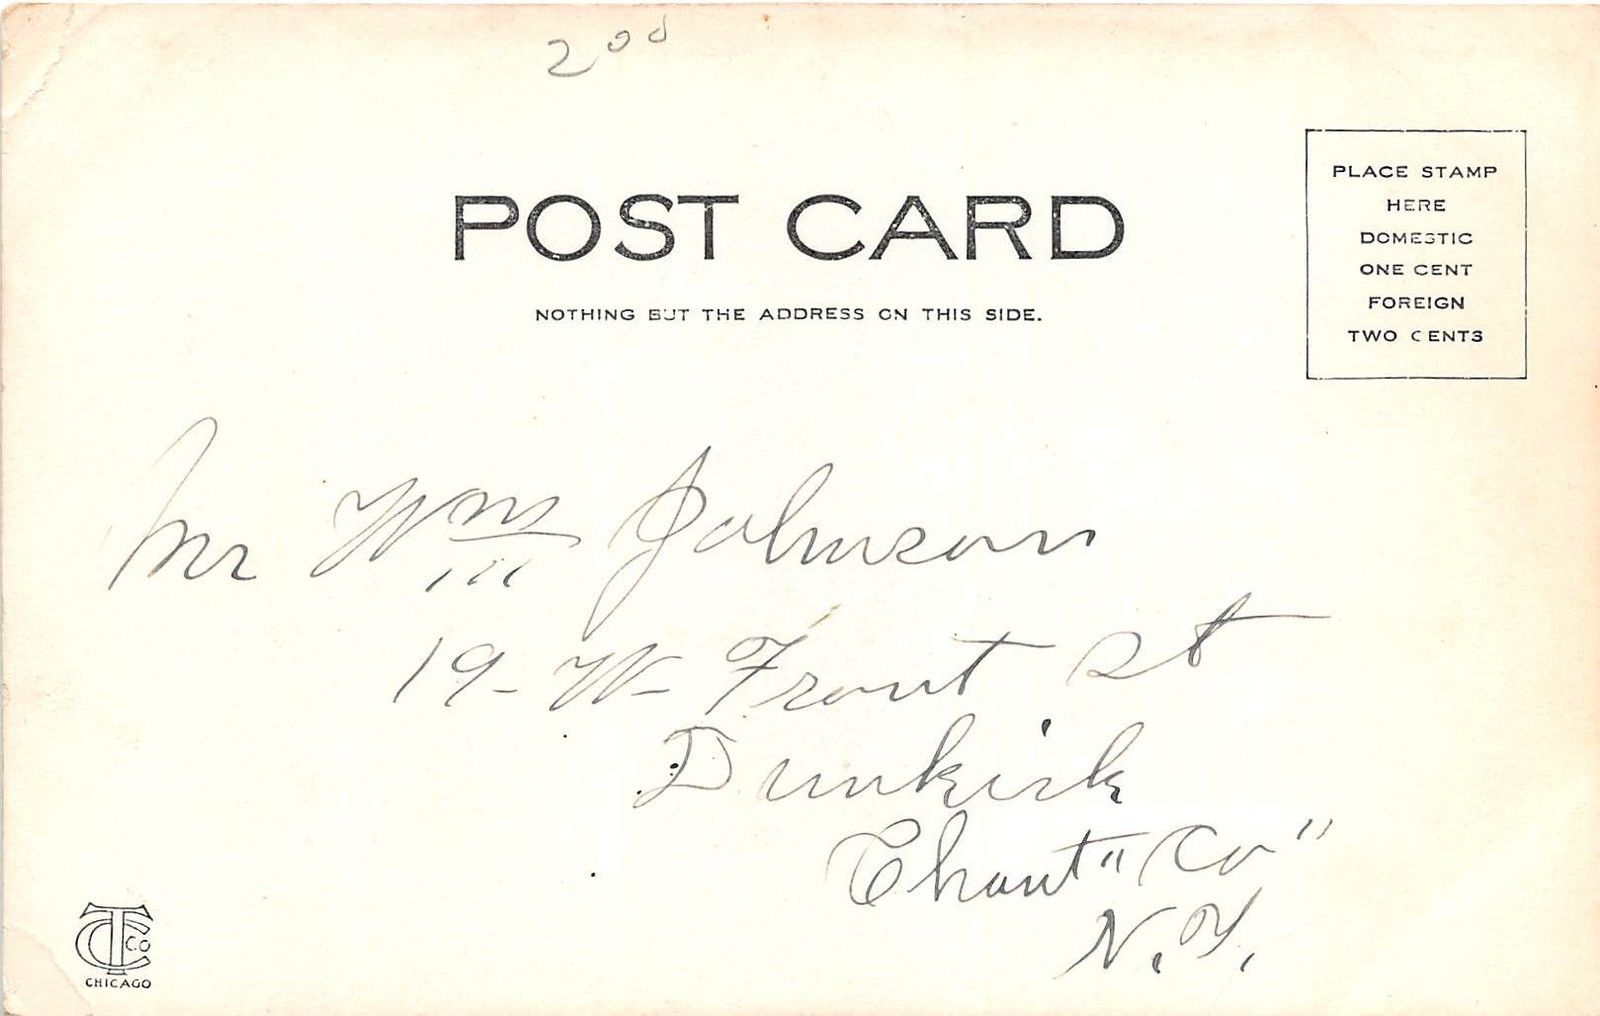 2 00
POST CARD
NOTHING BUT THE ADDRESS ON THIS SIDE.
PLACE STAMP
HERE
DOMESTIC
ONE CENT
FOREIGN
TWO CENTS
Mr Wm Johnson
19 - W - Front St
Dunkirk
Chaut" Co"
N.Y.
CTCo
CHICAGO